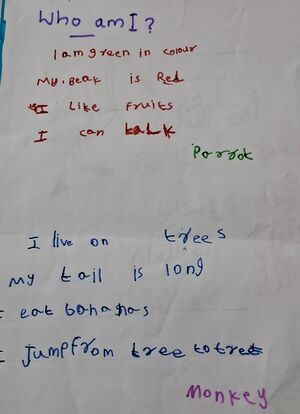 Who am I?
I am green in colour
My.Beak is Red
I like fruits
I can talk
Parrot
I live on trees
My tail is long
I eat bananas
I jump from tree to tree
Monkey